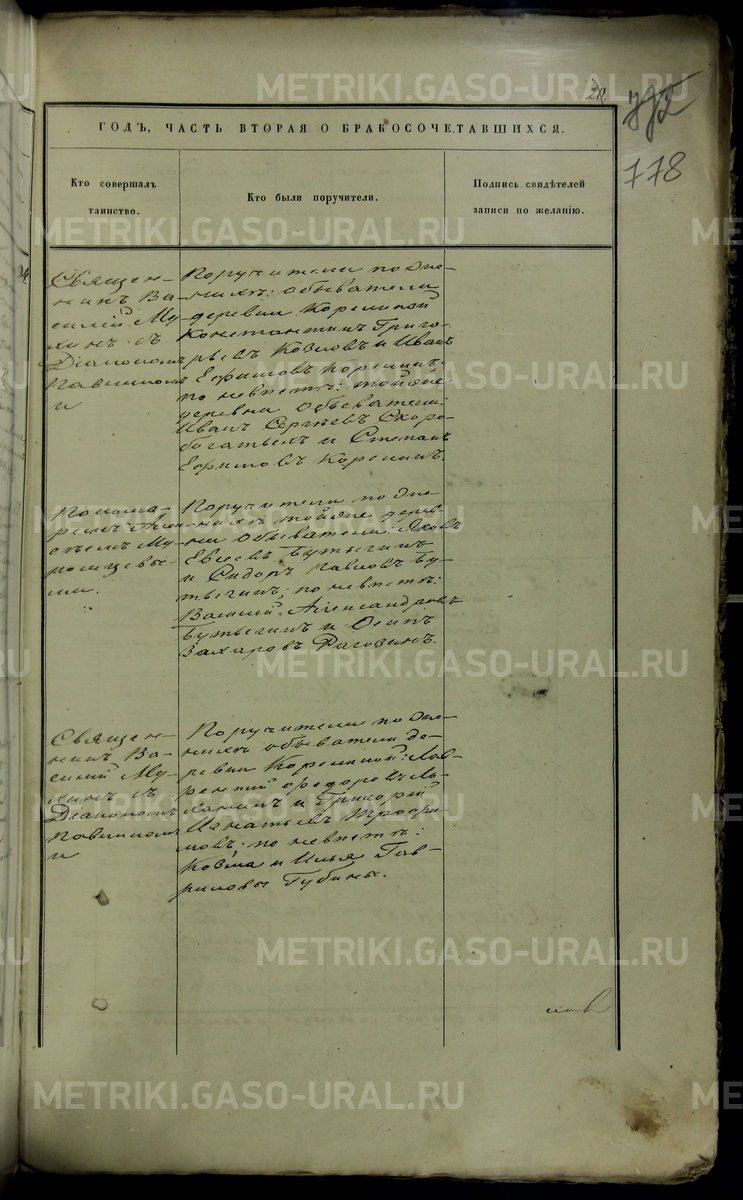 28.
772
778
ГОДЪ, ЧАСТЬ ВТОРАЯ О БРАКОСОЧЕТАВШИХСЯ.
Кто совершалъ
таинство.
Кто были поручители.
Подпись свидѣтелей
записи по желанію.
Священ-
никъ Ва-
силій Му-
хинъ съ
Діакономъ
Павлиномъ
и
Поручители по Же-
нихѣ: обыватели
деревни Корелиной
Константинъ Григо-
рьевъ Козловъ и Иванъ
Ефимовъ Корелинъ.
по невѣстѣ: тойже
деревни обыватели:
Иванъ Сергѣевъ Скоро-
богатыхъ и Степанъ
Ефимовъ Корелинъ.
Понома-
ремъ
ми.
Поручители по Же-
нихѣ тойже дерев-
ни обыватели: Яковъ
Евсѣевъ Бутыгинъ
и Сидоръ Павловъ Бу-
тыгинъ; по невѣстѣ:
Василій Александровъ
Бутыгинъ и Осипъ
Захаровъ Рагозинъ.
Священ-
никъ Ва-
силій Му-
хинъ съ
Діакономъ
Павлиномъ
и
Поручители по Же-
нихѣ обыватели де-
ревни Корелиной: Лав-
рентій Ѳедоровъ
и Григорій
Игнатьевъ Трофи-
мовъ; по невѣстѣ:
Козма и Илья Гав-
риловы Губины.
METRIKI.GASO-URAL.RU